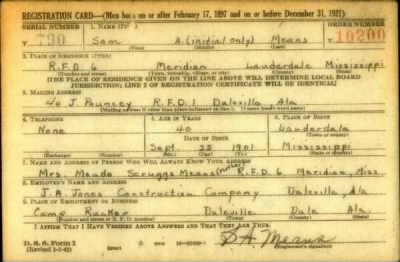 REGISTRATION CARD—(Men born on or after February 17, 1897 and on or before December 31, 1921)
SERIAL NUMBER 1. NAME (Print) ORDER NUMBER
T 790 Sam A.(initial only) Means T 10200
(First) (Middle) (Last)
2. PLACE OF RESIDENCE (Print)
R.F.D. 6 Meridian Lauderdale Mississippi
(Number and street) (Town, township, village, or city) (County) (State)
[THE PLACE OF RESIDENCE GIVEN ON THE LINE ABOVE WILL DETERMINE LOCAL BOARD
JURISDICTION; LINE 2 OF REGISTRATION CERTIFICATE WILL BE IDENTICAL]
3. MAILING ADDRESS
c/o J. Pouncey R.F.D. 1 Daleville, Ala
[Mailing address if other than place indicated on line 2. If same insert word same]
4. TELEPHONE 5. AGE IN YEARS 6. PLACE OF BIRTH
None 40 Lauderdale
DATE OF BIRTH (Town or county)
Sept. 25 1901 Mississippi
(Exchange) (Number) (Mo.) (Day) (Yr.) (State or country)
7. NAME AND ADDRESS OF PERSON WHO WILL ALWAYS KNOW YOUR ADDRESS
Mrs. Maude Scruggs Means (mother) R.F.D. 6 Meridian, Miss.
8. EMPLOYER'S NAME AND ADDRESS
J. A. Jones Construction Company Daleville, Ala
9. PLACE OF EMPLOYMENT OR BUSINESS
Camp Rucker Daleville Dale Ala.
(Number and street or R. F. D. number) (Town) (County) (State)
I AFFIRM THAT I HAVE VERIFIED ABOVE ANSWERS AND THAT THEY ARE TRUE.
D. S. S. Form 1
(Revised 1-1-42) S A Means
(Registrant's signature)